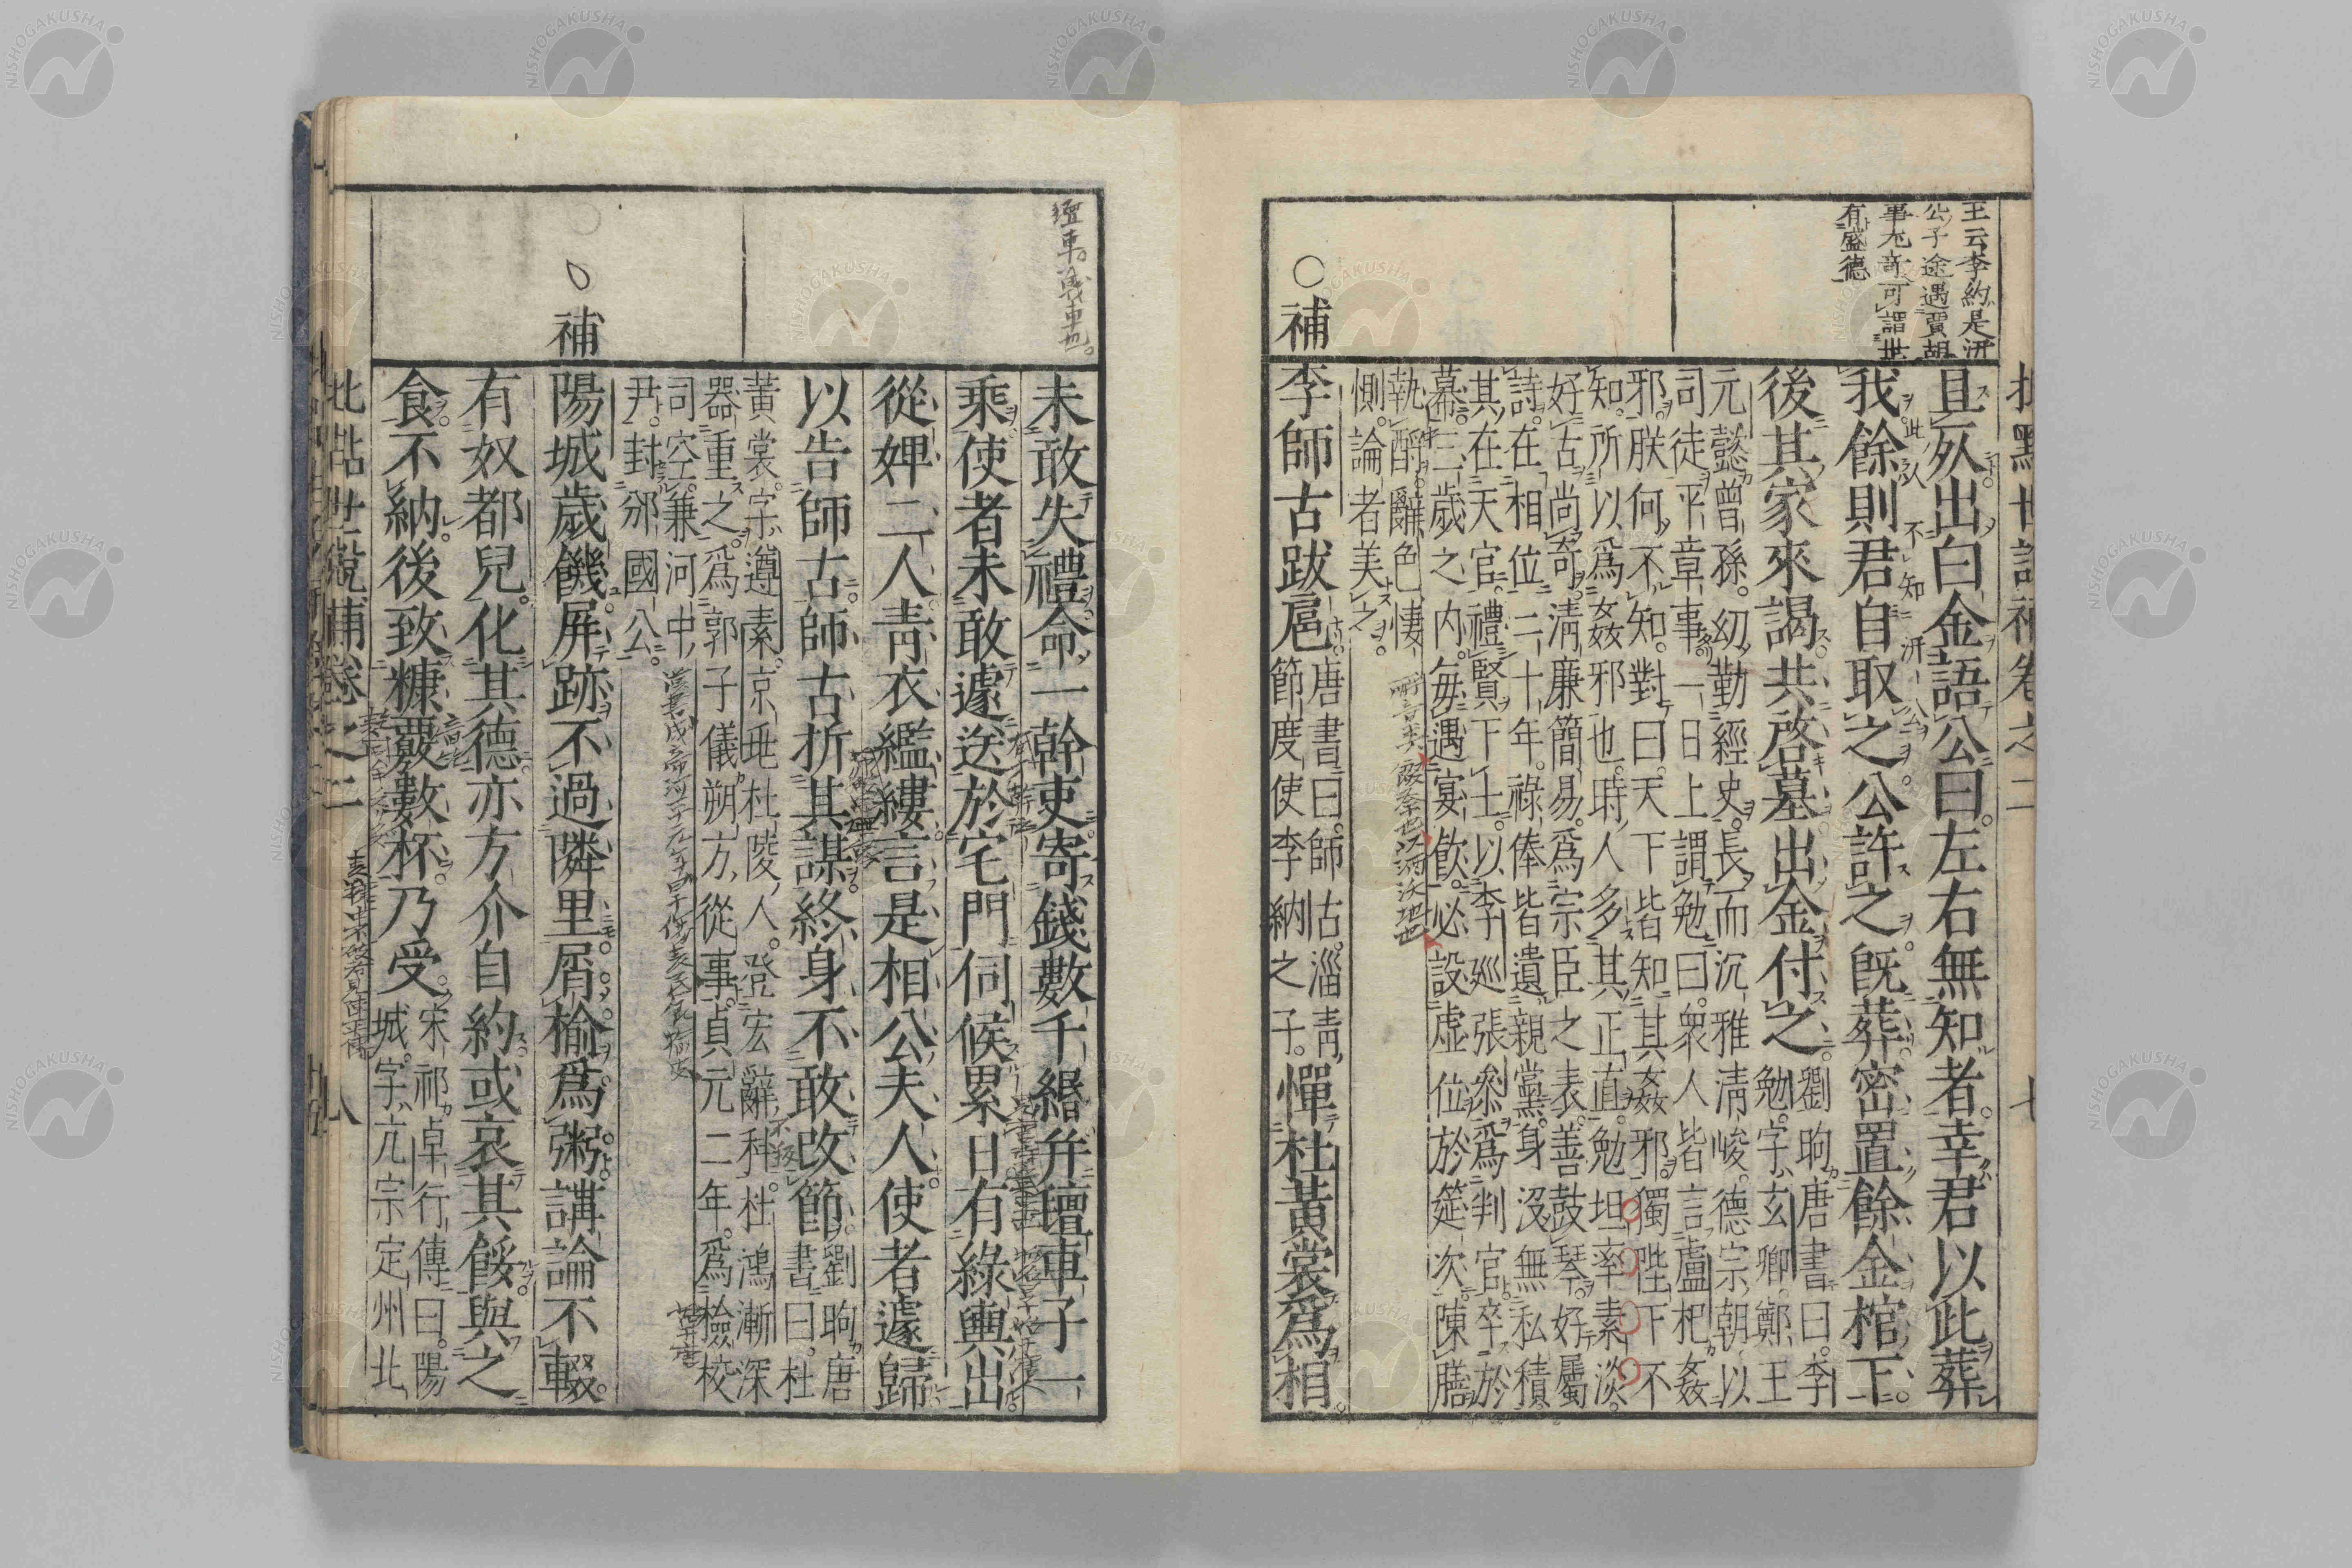 王云李約是汧
公子途遇賈胡
事尤竒可謂世
有盛德
且死出白金語公曰左右無知者幸君以此葬
我餘則君自取之公許之既葬密置餘金棺下
後其家來謁共啓墓出金付之
劉昫唐書曰李
勉字玄卿鄭王
元懿曾孫幼勤經史長而沉雅清峻德宗朝以
司徒平章事一日上謂勉曰衆人皆言盧杞姦
邪朕何不知對曰天下皆知其姦邪獨陛下不
知所以爲姦邪也時人多其正直勉坦率素淡
好古尚奇清廉簡易爲宗臣之表善鼓琴好屬
詩在相位二十年祿俸皆遺親黨身沒無私積
其在天官禮賢下士以李巡張叅爲判官卒於
幕三歲之内每遇宴飲必設虛位於筵次陳膳
執酹辭色悽
惻論者美之
○補
李師古跋扈
唐書曰師古淄青
節度使李納之子
憚杜黃裳爲相
未敢失禮命一幹吏寄錢數千緡并氊車子一
乘使者未敢遽送於宅門伺候累日有綠輿出
從婢二人青衣繿縷言是相公夫人使者遽歸
以告師古師古折其謀終身不敢改節
劉昫唐
書曰杜
黃裳字遵素京兆杜陵人登宏辭科杜鴻漸深
器重之爲郭子儀朔方從事貞元二年爲檢校
司空兼河中
尹封邠國公
補
陽城歲饑屏跡不過隣里屑榆爲粥講論不輟
有奴都兒化其德亦方介自約或哀其餒與之
食不納後致糠覈數杯乃受
宋祁卓行傳曰陽
城字亢宗定州北
世說補卷之二
八